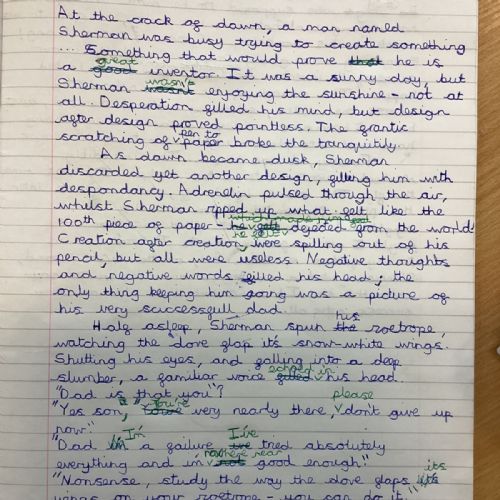 At the crack of dawn, a man named
Sherman was busy trying to create something
... Something that would prove that he is
great
a good inventor. It was a sunny day, but
wasn't
Sherman wasnt enjoying the sunshine - not at
all. Desperation filled his mind, but design
after design proved pointless. The frantic
pen to
scratching of paper broke the tranquility.
As dawn became dusk, Sherman
discarded yet another design, filling him with
despondancy. Adrenelin pulsed through the air,
whilst Sherman ripped up what felt like the
which made him feel
100th piece of paper - dejected from the world.
he fell
Creation after creation, were spilling out of his
pencil, but all were useless. Negative thoughts
and negative words filled his head; the
only thing keeping him going was a picture of
his very successfull dad.
his
Half asleep, Sherman spun the zoetrope,
watching the dove flap its snow-white wings.
Shutting his eyes, and falling into a deep
echoed in
slumber, a familiar voice filled his head.
"Dad is that you"?
you're please
"Yes son, very nearly there, don't give up
now."
I'm I've
"Dad im a failure ive tred absolutely
nowhere near
everything and im not good enough!"
its
"Nonsense, study the way the dove flaps its
wings on your zoetrope - you can do it."